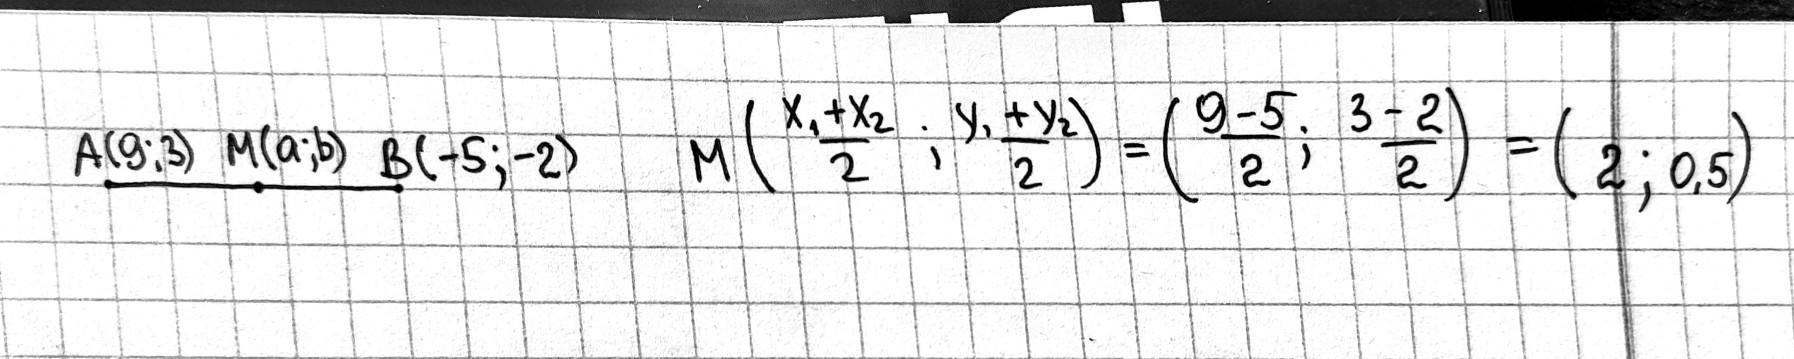 A(9;3) M(a;b) B(-5;-2) M((x₁+x₂)/2 ; (y₁+y₂)/2) = ((9-5)/2 ; (3-2)/2) = (2; 0,5)